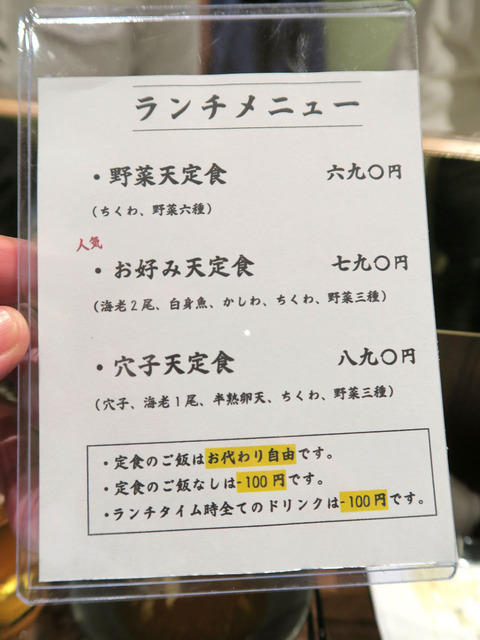 ランチメニュー
・野菜天定食 六九〇円
(ちくわ、野菜六種)
人気
・お好み天定食 七九〇円
(海老2尾、白身魚、かしわ、ちくわ、野菜三種)
・穴子天定食 八九〇円
(穴子、海老1尾、半熟卵天、ちくわ、野菜三種)
・定食のご飯はお代わり自由です。
・定食のご飯なしは-100円です。
・ランチタイム時全てのドリンクは-100円です。